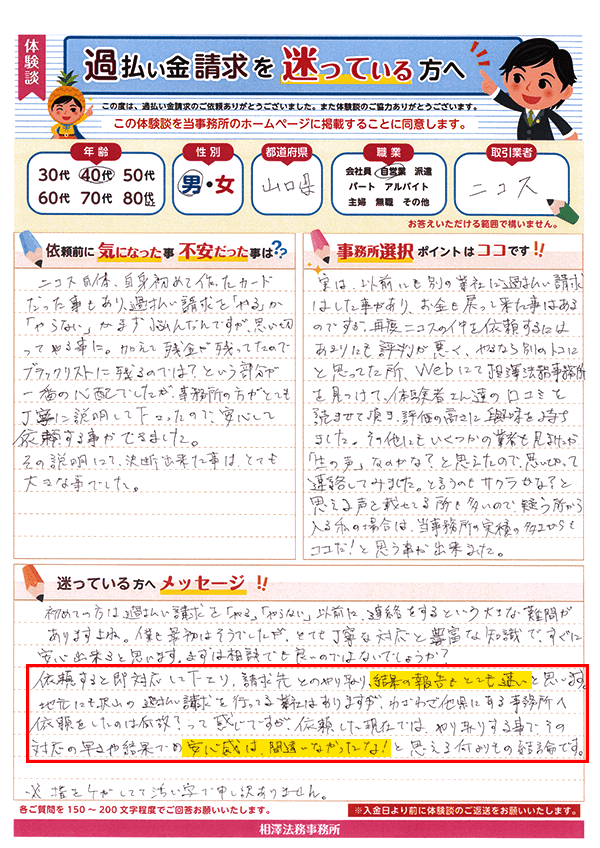 体験談
過払い金請求を迷っている方へ
この度は、過払い金請求のご依頼ありがとうございました。また体験談のご協力ありがとうございます。
この体験談を当事務所のホームページに掲載することに同意します。
年齢
30代 40代 50代
60代 70代 80代
性別
男・女
都道府県
山口県
職業
会社員 自営業 派遣
パート アルバイト
主婦 無職 その他
取引業者
ニコス
お答えいただける範囲で構いません。
依頼前に気になった事 不安だった事は??
ニコス自体、自身初めて作ったカード
だった事もあり、過払い請求を「やる」か
「やらない」かまず悩んだんですが、思い切
ってやる事に。加えて残金が残ってたので
ブラックリストに残るのでは?という部分が
一番の心配でしたが、事務所の方がとても
丁寧に説明して下さったので安心して
依頼する事ができました。
その説明にて、決断出来た事は、とても
大きな事でした。
事務所選択ポイントはココです!!
実は、以前にも別の業社に過払い請求
はした事があり、お金も戻って来た事はある
のですが、再度ニコスの件を依頼するには
あまりにも評判が悪く、やるなら別のトコに
と思ってた所、Webにて相澤法務事務所
を見つけて、体験者さん達の口コミを
読ませて頂き、評価の高さに興味を持ち
ました。その他にもいくつかの業者も見ましたが
「生の声」なのかな?と思えたので、思い切って
連絡してみました。と言うのもサクラかな?と
思える声を載せてる所も多いので、疑う所から
入る私の場合は、当事務所の実績の多さからも
ココだ!と思う事が出来ました。
迷っている方へメッセージ!!
初めての方は過払い請求を「やる」「やらない」以前に、連絡をするという大きな難問が
ありますよね。僕も最初はそうでしたが、とても丁寧な対応と豊富な知識で、すぐに
安心出来ると思います。まずは相談でも良いのではないでしょうか?
依頼すると即対応して下さり、請求先とのやり取り、結果の報告もとても速いと思います。
地元にも沢山の過払い請求を行ってる業社はありますが、わざわざ他県にある事務所へ
依頼をしたのは何故?って感じですが、依頼した現在では、やり取りする事でその
対応の早さや結果での安心感は、間違いなかったな!と思える何よりもの結論です。
※ 指をケガしてて汚い字で申し訳ありません。
各ご質問を150～200文字程度でご回答お願いいたします。
※入金日より前に体験談のご返送をお願いいたします。
相澤法務事務所